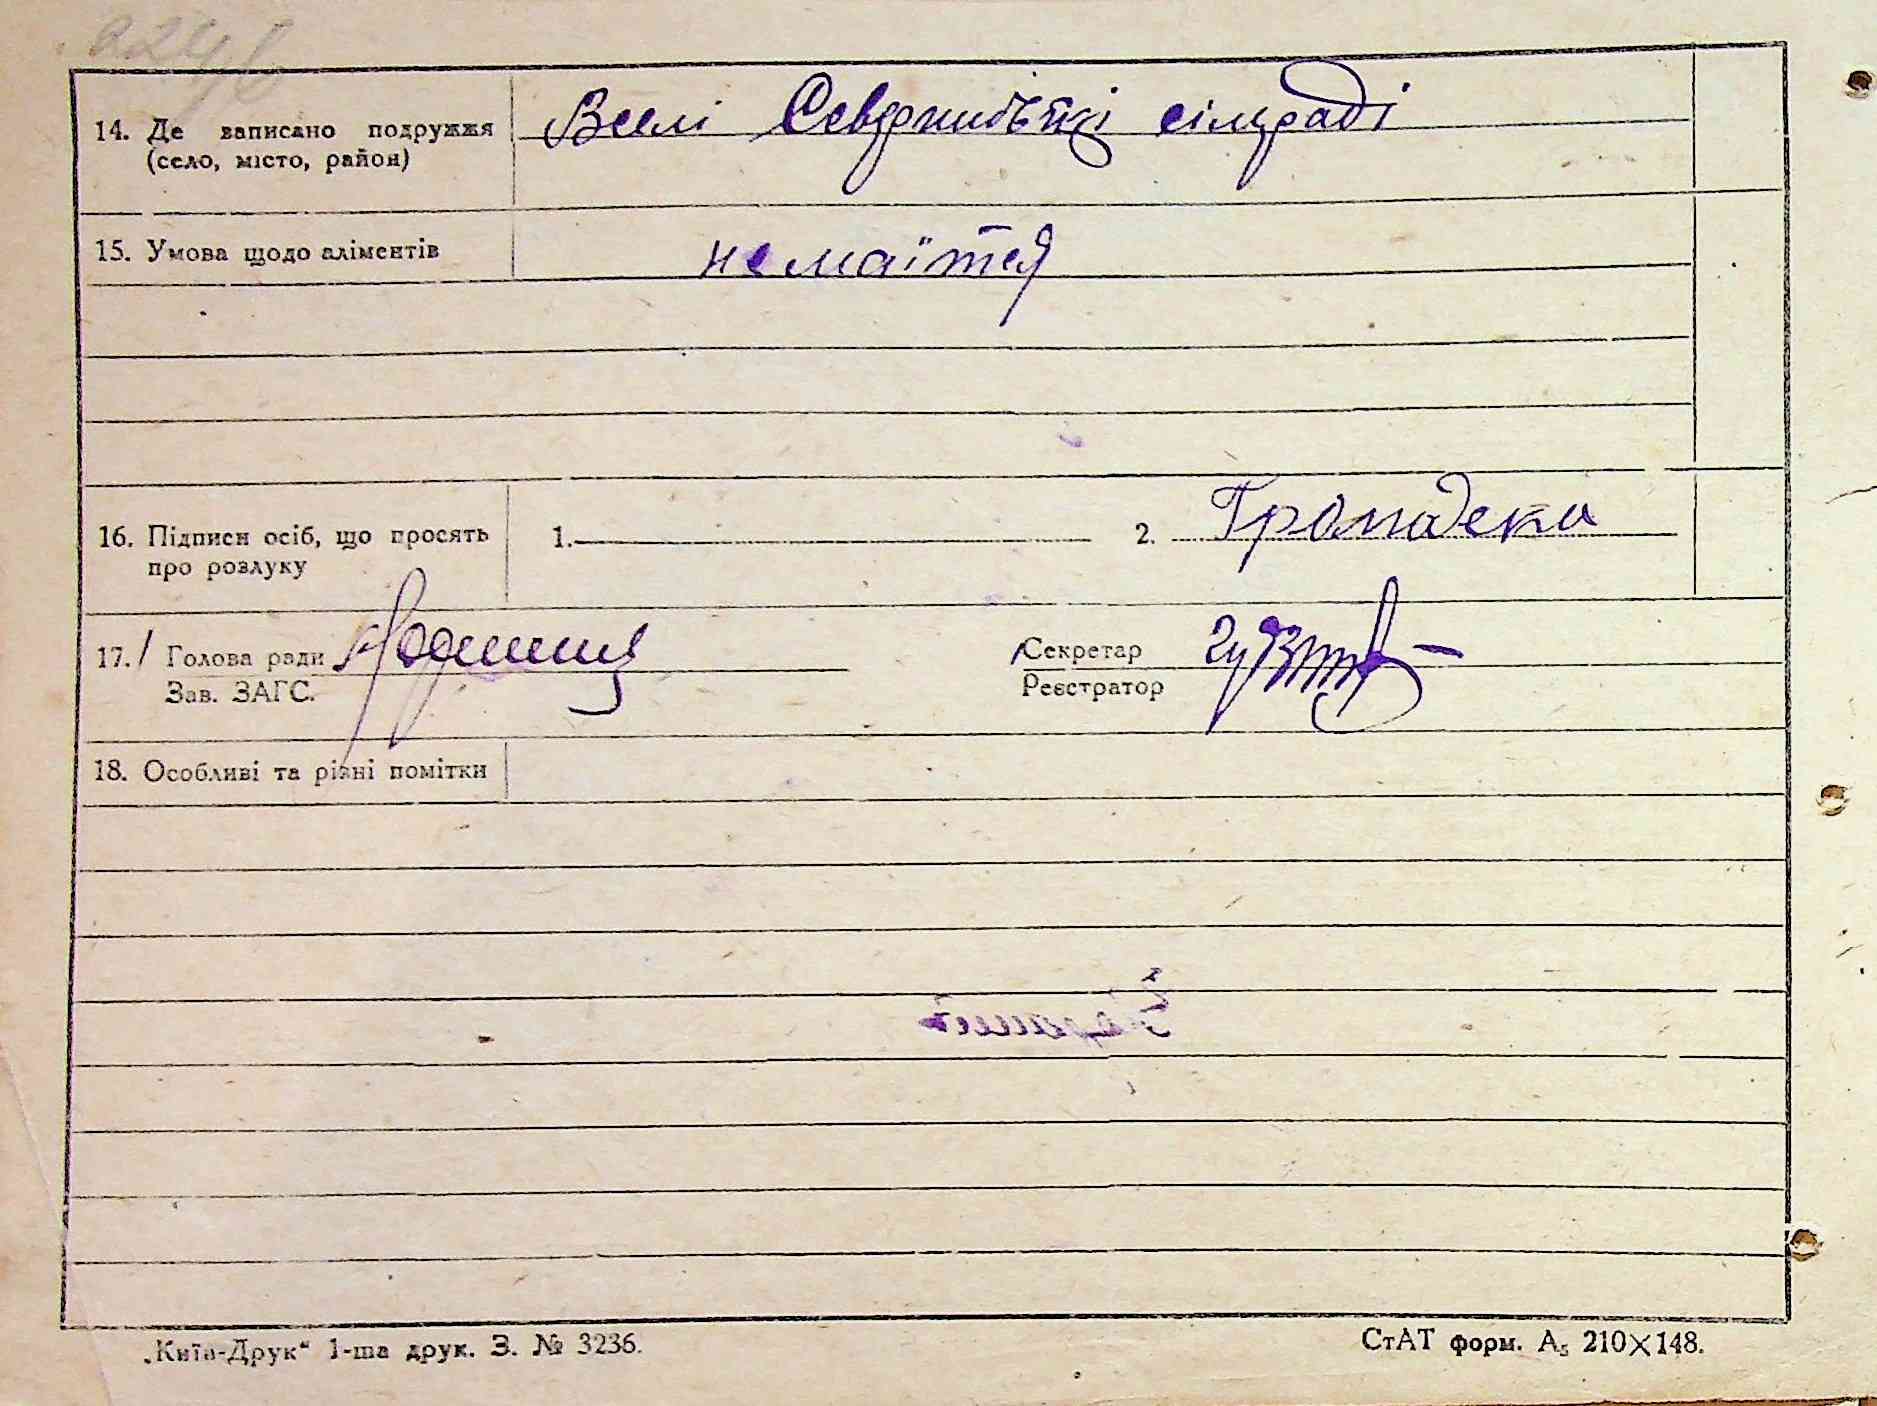 14. Де записано подружжя
(село, місто, район)
Вселі сілраді
15. Умова щодо аліментів
немаїтся
16. Підписи осіб, що просять
про розлуку
1.
2. Громадска
17. Голова ради
Зав. ЗАГС.
Секретар
Реєстратор
18. Особливі та різні помітки
„Київ-Друк“ 1-ша друк. З. № 3236.
СтАТ форм. А₅ 210×148.